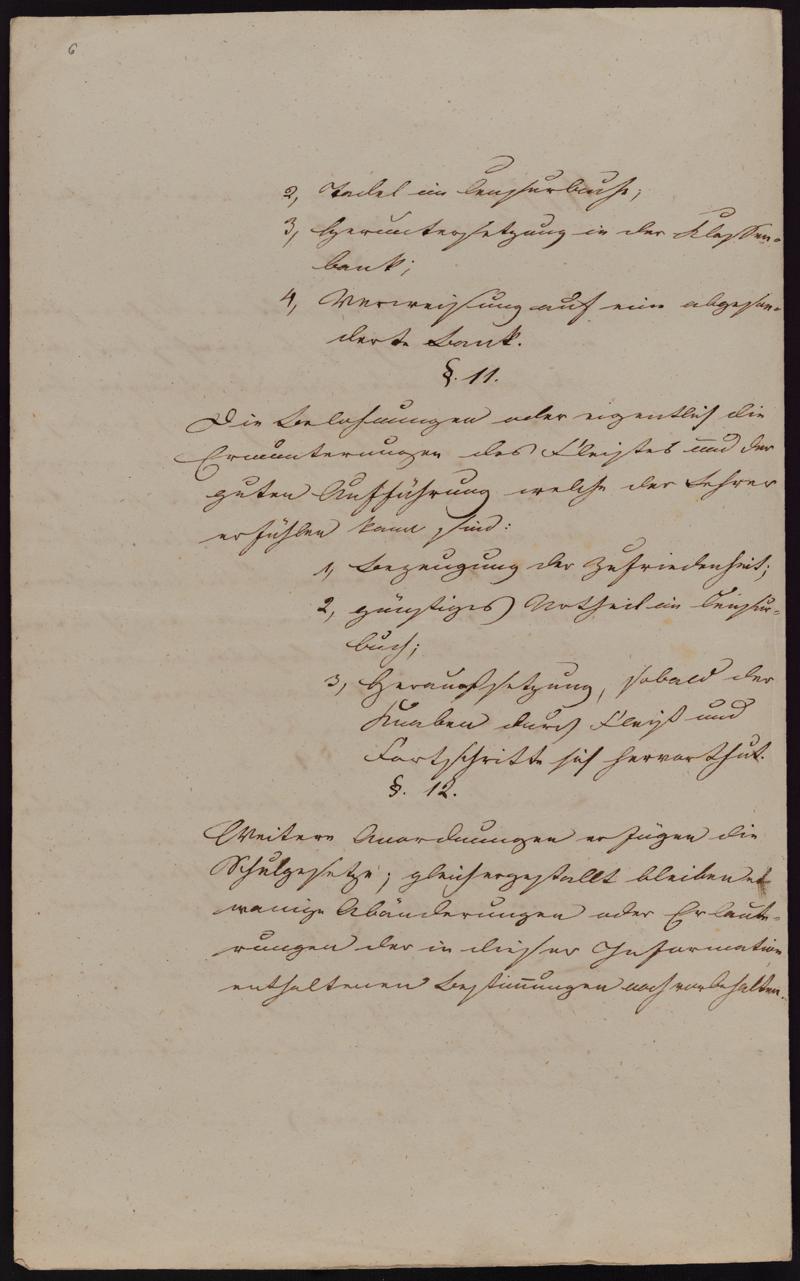 6
2, Tadel im Censurbuche;
3, Heruntersetzung in der Klassen-
bank;
4, Verweisung auf eine abgeson-
derte Bank.
§. 11.
Die Belohnungen oder eigentlich die
Ermunterungen des Fleißes und der
guten Aufführung welche der Lehrer
kann sind:
1, Bezeugung der Zufriedenheit;
2, günstiges Urtheil im Censur-
buch;
3, Heraufsetzung, sobald der
Knaben durch Fleiß und
Fortschritte sich hervorthut.
§. 12.
Weitere Anordnungen die
Schulgesetze; gleichergestallt bleiben et-
wanige Abänderungen oder Erläute-
rungen der in dieser Information
enthaltenen Bestim̄ungen noch vorbehalten.